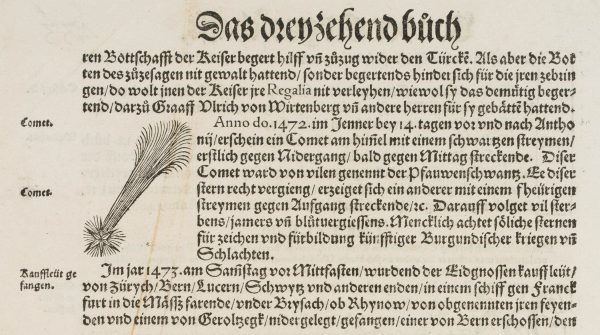 Das dreyzehend bůch
ren Bottschafft der Keiser begert hilff vñ zůzug wider den Türckē. Als aber die Bot
ten des zůzesagen nit gewalt hattend/ sonder begertends hindei sich für die jren zebrin
gen/ do wolt jnen der Keiser jre Regalia nit verleyhen/ wiewol sy das demůtig beger-
tend/ darzů Graaff Vlrich von Wirtenberg vñ andere herren für sy gebättē hattend.
Comet.
Anno do. 1472. im Jenner bey 14. tagen vor vnd nach Antho
nij/ erschein ein Comet am him̃el mit einem schwartzen streymen/
erstlich gegen Nidergang/ bald gegen Mittag streckende. Diser
Comet ward von vilen genennt der Pfauwenschwantz. Ee diser
Comet.
stern recht vergieng/ erzeiget sich ein anderer mit einem fheürigen
streymen gegen Auffgang streckende/ ꝛc. Darauff volget vil ster-
bens/ jamers vñ blůtuergiessens. Mencklich achtet sőliche sternen
für zeichen vnd fürbildung künfftiger Burgundischer kriegen vñ
Schlachten.
Kauffleüt ge
fangen.
Im jar 1473. am Sam̃stag vor Mittfasten/ wurdend der Eidgnossen kauffleüt/
von Zürych/ Bern/ Lucern/ Schwytz vnd anderen enden/ in einem schiff gen Franck
furt in die Mässz farende/ vnder Brysach/ ob Rhynow/ von obgenennten jren feyen-
den vnd einem von Geroltzegk/ nidergelegt/ gefangen/ einer von Bern erschossen/ den